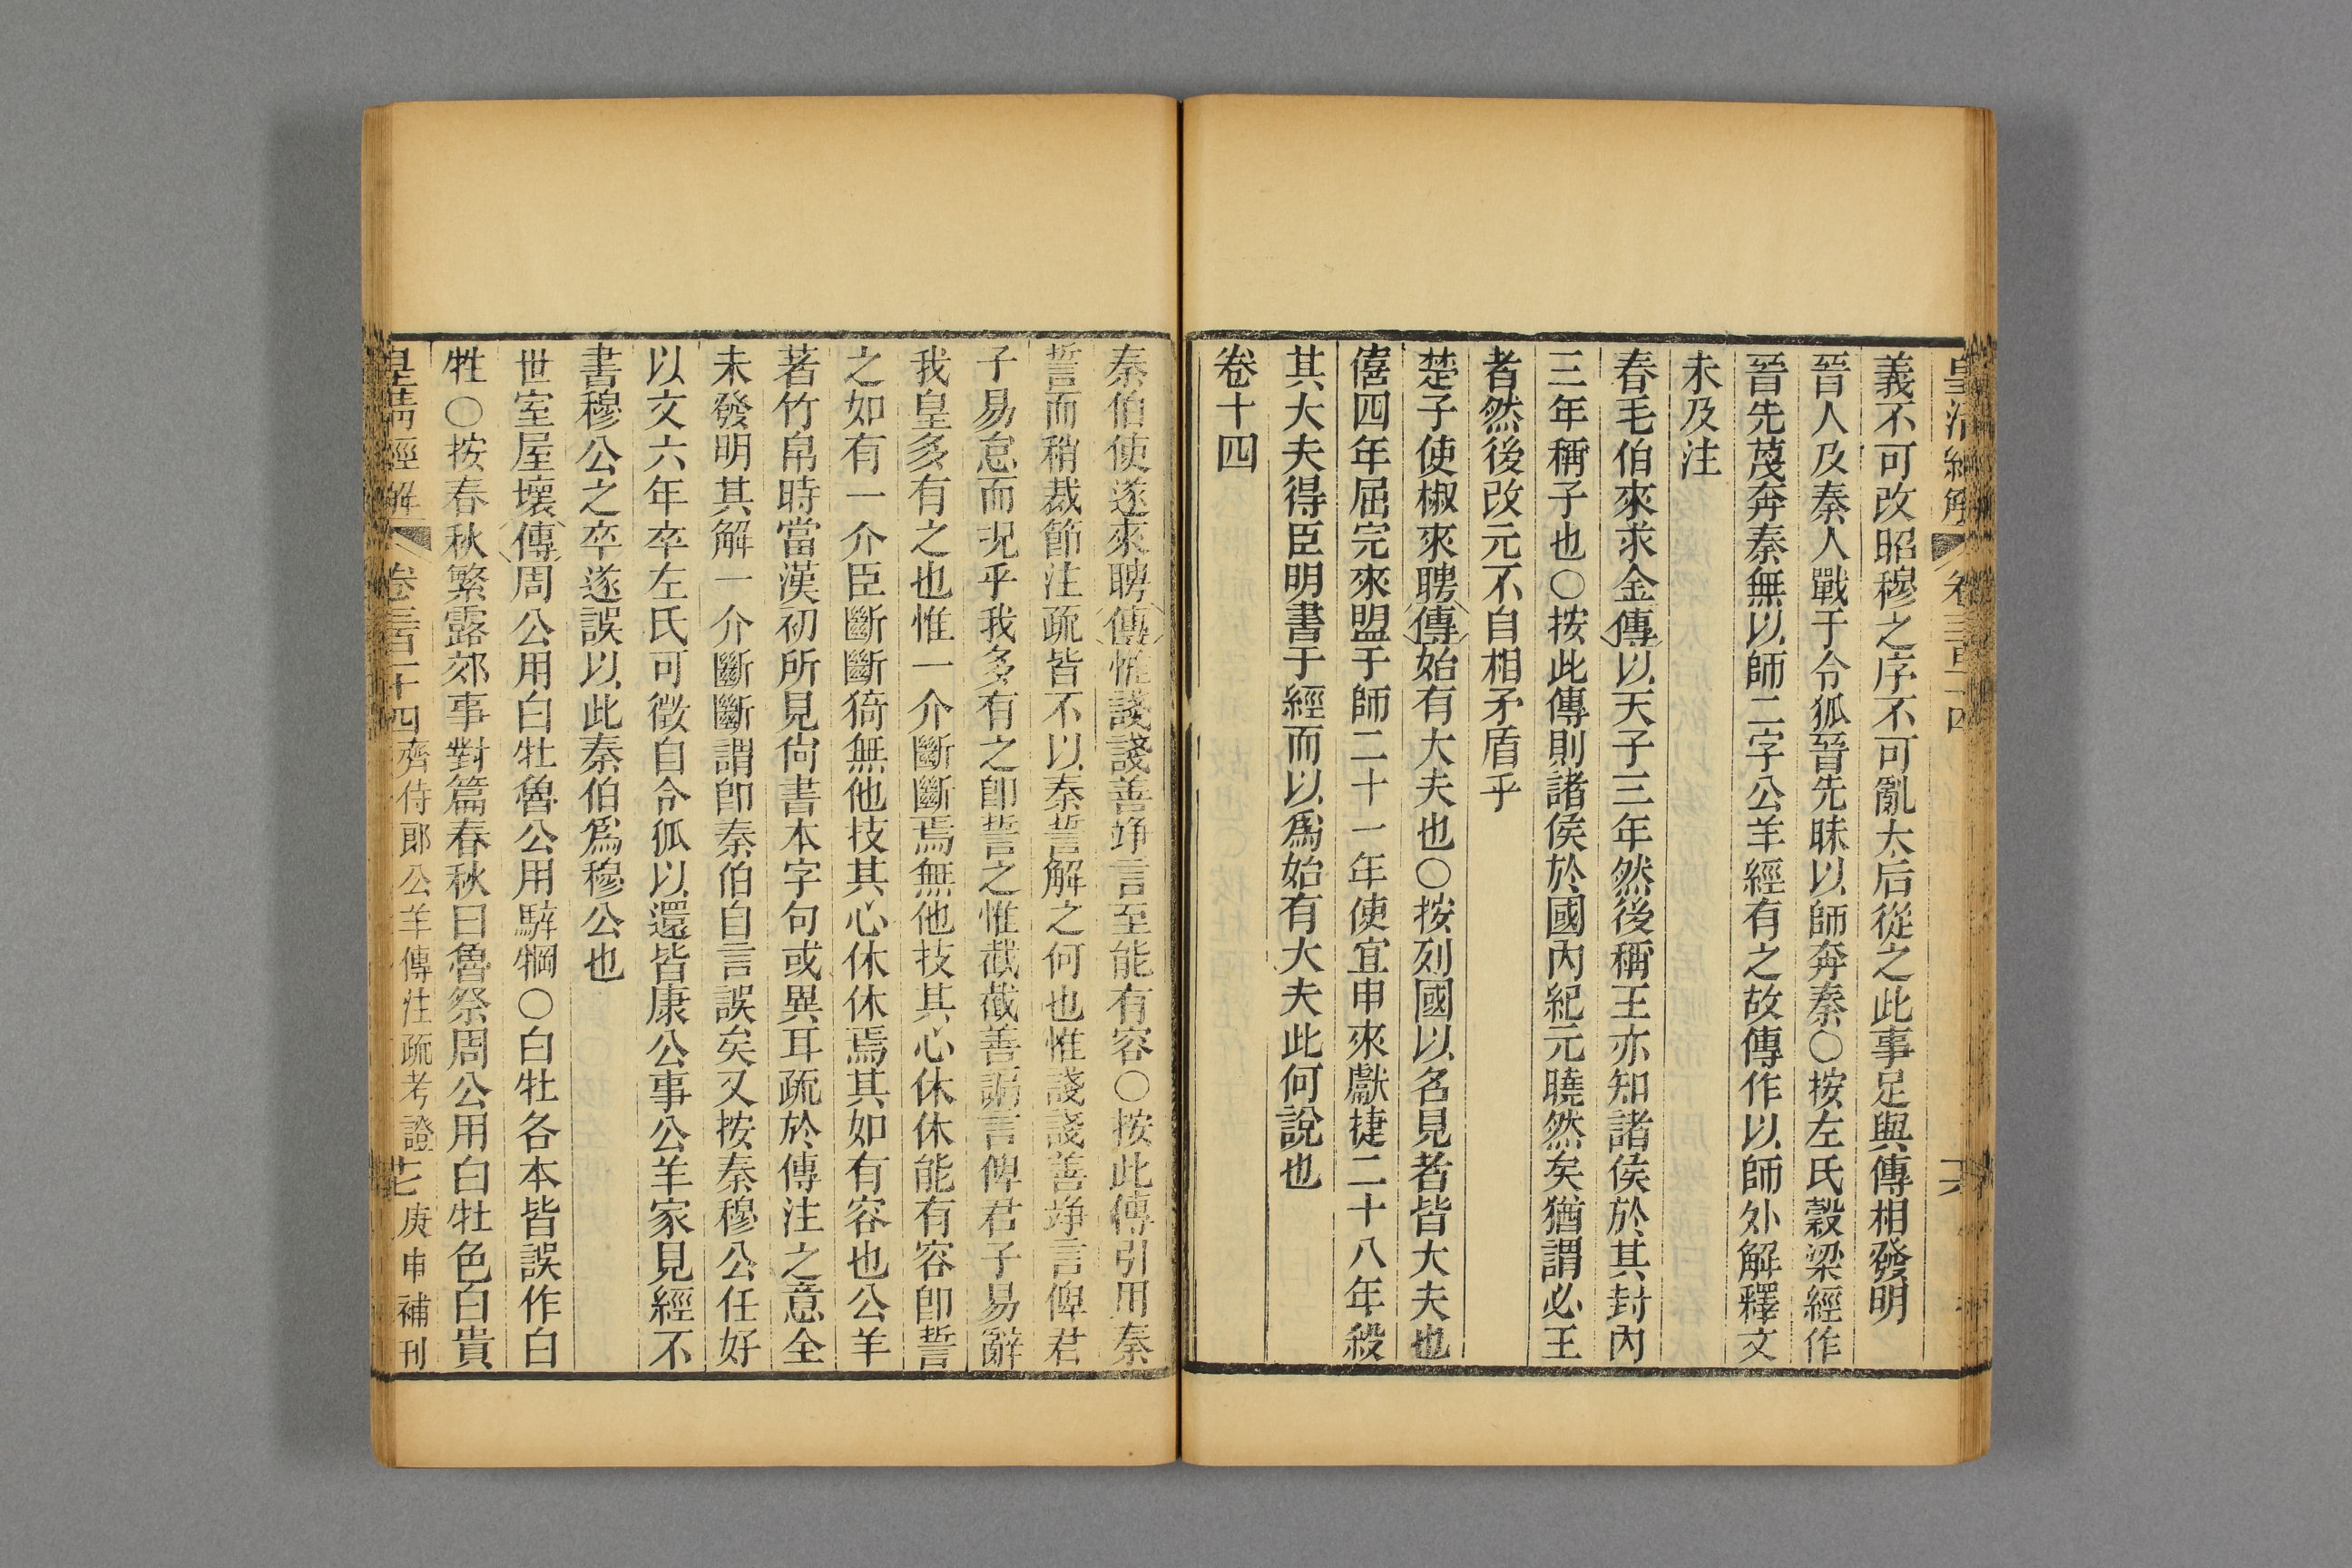 皇清經解 卷三百十四 六
義不可改昭穆之序不可亂大后從之此事足與傳相發明
晉人及秦人戰于令狐晉先眛以師奔秦○按左氏穀梁經作
晉先蔑奔秦無以師二字公羊經有之故傳作以師外解釋文
未及注
春毛伯來求金傳以天子三年然後稱王亦知諸侯於其封內
三年稱子也○按此傳則諸侯於國內紀元曉然矣猶謂必王
者然後改元不自相矛盾乎
楚子使椒來聘傳始有大夫也○按列國以名見者皆大夫也
僖四年屈完來盟于師二十一年使宜申來獻捷二十八年殺
其大夫得臣明書于經而以爲始有大夫此何說也
卷十四
秦伯使遂來聘傳惟諓諓善竫言至能有容○按此傳引用秦
誓而稍裁節注疏皆不以秦誓解之何也惟諓諓善竫言俾君
子易怠而況乎我多有之卽誓之惟截截善諞言俾君子易辭
我皇多有之也惟一介斷斷焉無他技其心休休能有容卽誓
之如有一介臣斷斷猗無他技其心休休焉其如有容也公羊
著竹帛時當漢初所見尙書本字句或異耳疏於傳注之意全
未發明其解一介斷斷謂卽秦伯自言誤矣又按秦穆公任好
以文六年卒左氏可徵自令狐以還皆康公事公羊家見經不
書穆公之卒遂誤以此秦伯爲穆公也
世室屋壞傳周公用白牡魯公用騂犅○白牡各本皆誤作白
牲○按春秋繁露郊事對篇春秋曰魯祭周公用白牡色白貴
皇清經解 卷三百十四 齊侍郎公羊傳注疏考證 七 庚申補刊